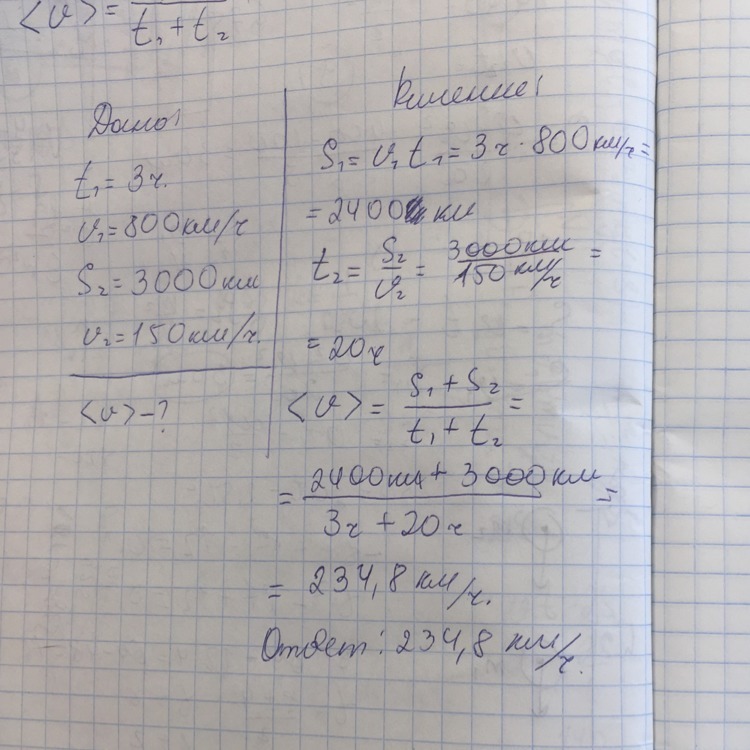 <v> =
t₁ + t₂
Дано:
t₁ = 3ч.
v₁ = 800 км/ч
S₂ = 3000 км
v₂ = 150 км/ч.
<v> - ?
Решение:
S₁ = v₁ t₁ = 3ч · 800 км/ч =
= 2400 км
t₂ = S₂/v₂ = 3000 км/150 км/ч =
= 20ч
<v> = S₁ + S₂ / t₁ + t₂ =
= 2400км + 3000 км / 3ч + 20ч =
= 234,8 км/ч.
Ответ: 234,8 км/ч.